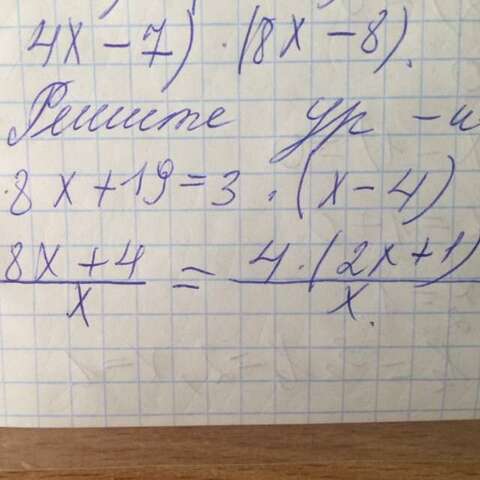 4x - 7) · (8x - 8).
Решите ур -и
8x + 19 = 3 · (x - 4)
8x + 4 / x = 4 · (2x + 1) / x.